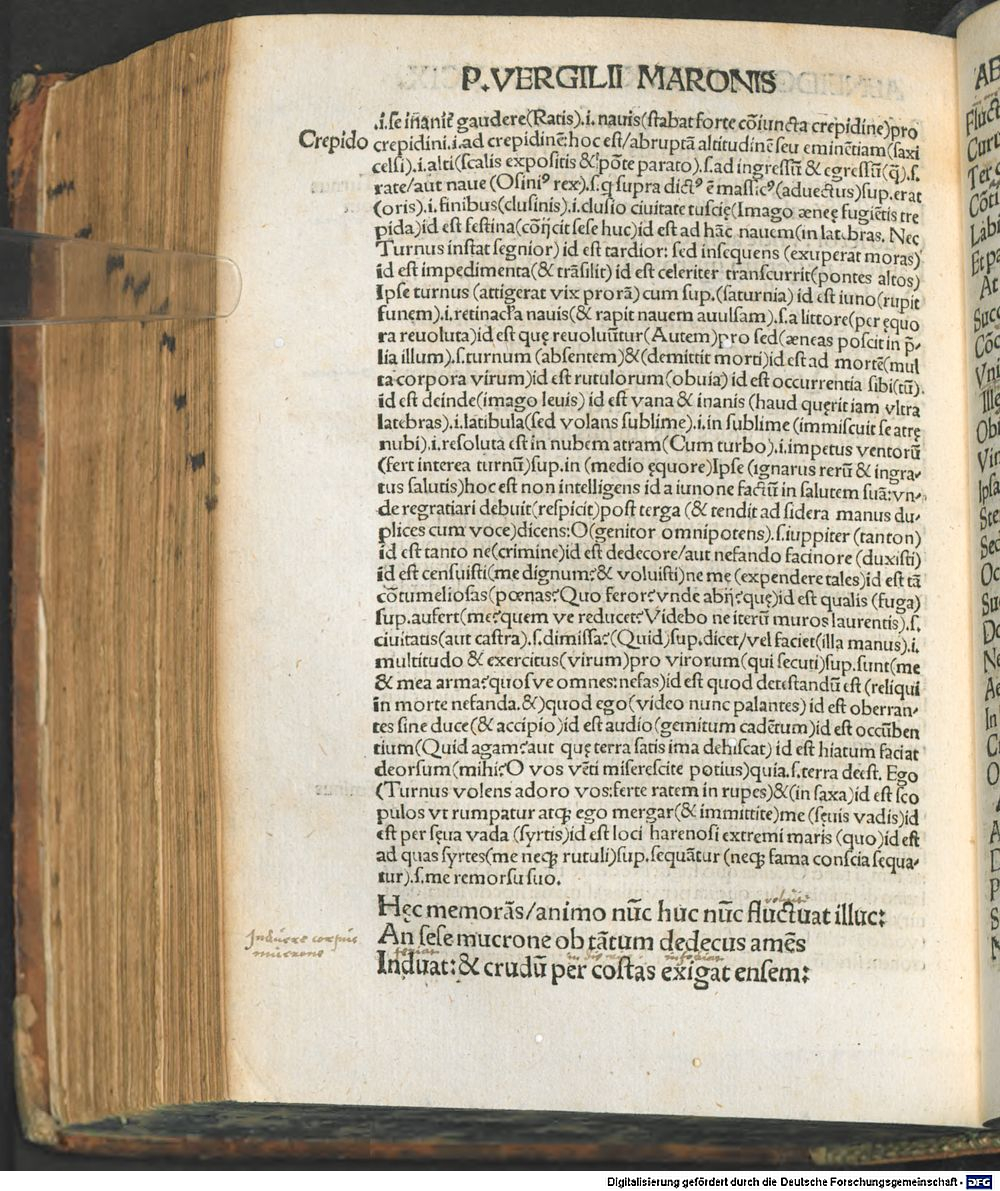 P. VERGILII MARONIS
.i. se inanit̄ gaudere(Ratis).i. nauis(stabat forte cōiuncta crepidine)pro
Crepido
crepidini.i.ad crepidinē:hoc est/abruptā altitudinē seu eminētiam(saxi
celsi).i.alti(scalis expositis & pōte parato).s.ad ingressū & egressū(q̄).s.
rate/aut naue (Osiniꝰ rex).s.q supra dictꝰ ē massicꝰ(aduectus)sup.erat
(oris).i.finibus(clusinis).i.clusio ciuitate tuscię(Imago æneę fugiētis tre
pida)id est festina(cōijcit sese huc)id est ad hāc nauem(in latebras. Nec
Turnus instat segnior) id est tardior: sed insequens (exuperat moras)
id est impedimenta(& trāsilit) id est celeriter transcurrit(pontes altos)
Ipse turnus (attigerat vix prorā) cum sup.(saturnia) id est iuno(rupit
funem).i.retinacła nauis(& rapit nauem auulsam).s.a littore(per ęquo
ra reuoluta)id est quę reuoluūtur(Autem)pro sed(æneas poscit in p̄-
lia illum).s.turnum (absentem)&(demittit morti)id est ad mortē(mul
ta corpora virum)id est rutulorum(obuia) id est occurrentia sibi(tū).
id est deinde(imago leuis) id est vana & inanis (haud quęrit iam vltra
latebras).i.latibula(sed volans sublime).i.in sublime (immiscuit se atrę
nubi).i.resoluta est in nubem atram(Cum turbo).i.impetus ventorū
(fert interea turnū)sup.in (medio ęquore)Ipse (ignarus rerū & ingra-
tus salutis)hoc est non intelligens id a iunone factū in salutem suā:vn-
de regratiari debuit(respicit)post terga (& tendit ad sidera manus du-
plices cum voce)dicens:O(genitor omnipotens).s.iuppiter (tanton)
id est tanto ne(crimine)id est dedecore/aut nefando facinore (duxisti)
id est censuisti(me dignum?& voluisti)ne me (expendere tales)id est tā
cōtumeliosas(pœnas?Quo feror?vnde abij?quę)id est qualis (fuga)
sup.aufert(me?quem ve reducet?Videbo ne iterū muros laurentis).s.
ciuitatis(aut castra).s.dimissa?(Quid)sup.dicet/vel faciet(illa manus).i.
multitudo & exercitus(virum)pro virorum(qui secuti)sup.sunt(me
& mea arma?quos ve omnes:nefas)id est quod detestandū est (reliqui
in morte nefanda.&)quod ego(video nunc palantes) id est oberran-
tes sine duce(& accipio)id est audio(gemitum cadētum)id est occūben
tium(Quid agam?aut quę terra satis ima dehiscat) id est hiatum faciat
deorsum(mihi?O vos vēti miserescite potius)quia.s.terra deest. Ego
(Turnus volens adoro vos:ferte ratem in rupes)&(in saxa)id est sco
pulos vt rumpatur atqꝫ ego mergar(& immittite)me (sęuis vadis)id
est per sęua vada (syrtis)id est loci harenosi extremi maris (quo)id est
ad quas syrtes(me neqꝫ rutuli)sup.sequātur (neqꝫ fama conscia sequa-
tur).s.me remorsu suo.
Hęc memorās/animo nūc huc nūc fluctuat illuc:
An sese mucrone ob tātum dedecus amēs
Induere corpus
mucrone
Induat: & crudū per costas exigat ensem:
Digitalisierung gefördert durch die Deutsche Forschungsgemeinschaft - DFG